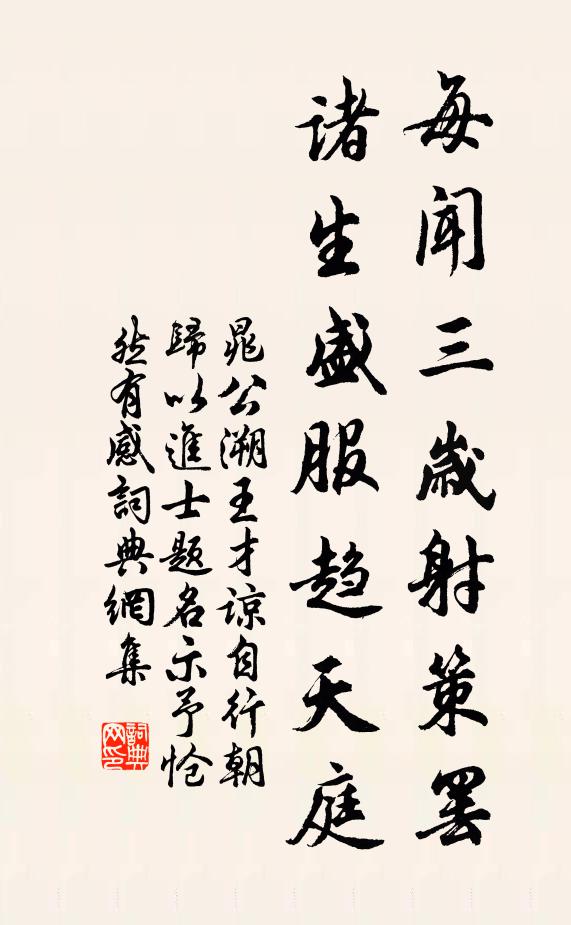 每闻三歲射策罢
诸生盛服趋天庭
晁公溯王才谅自行朝
歸以進士题名示予怆
然有感詞典網集
詞典网印